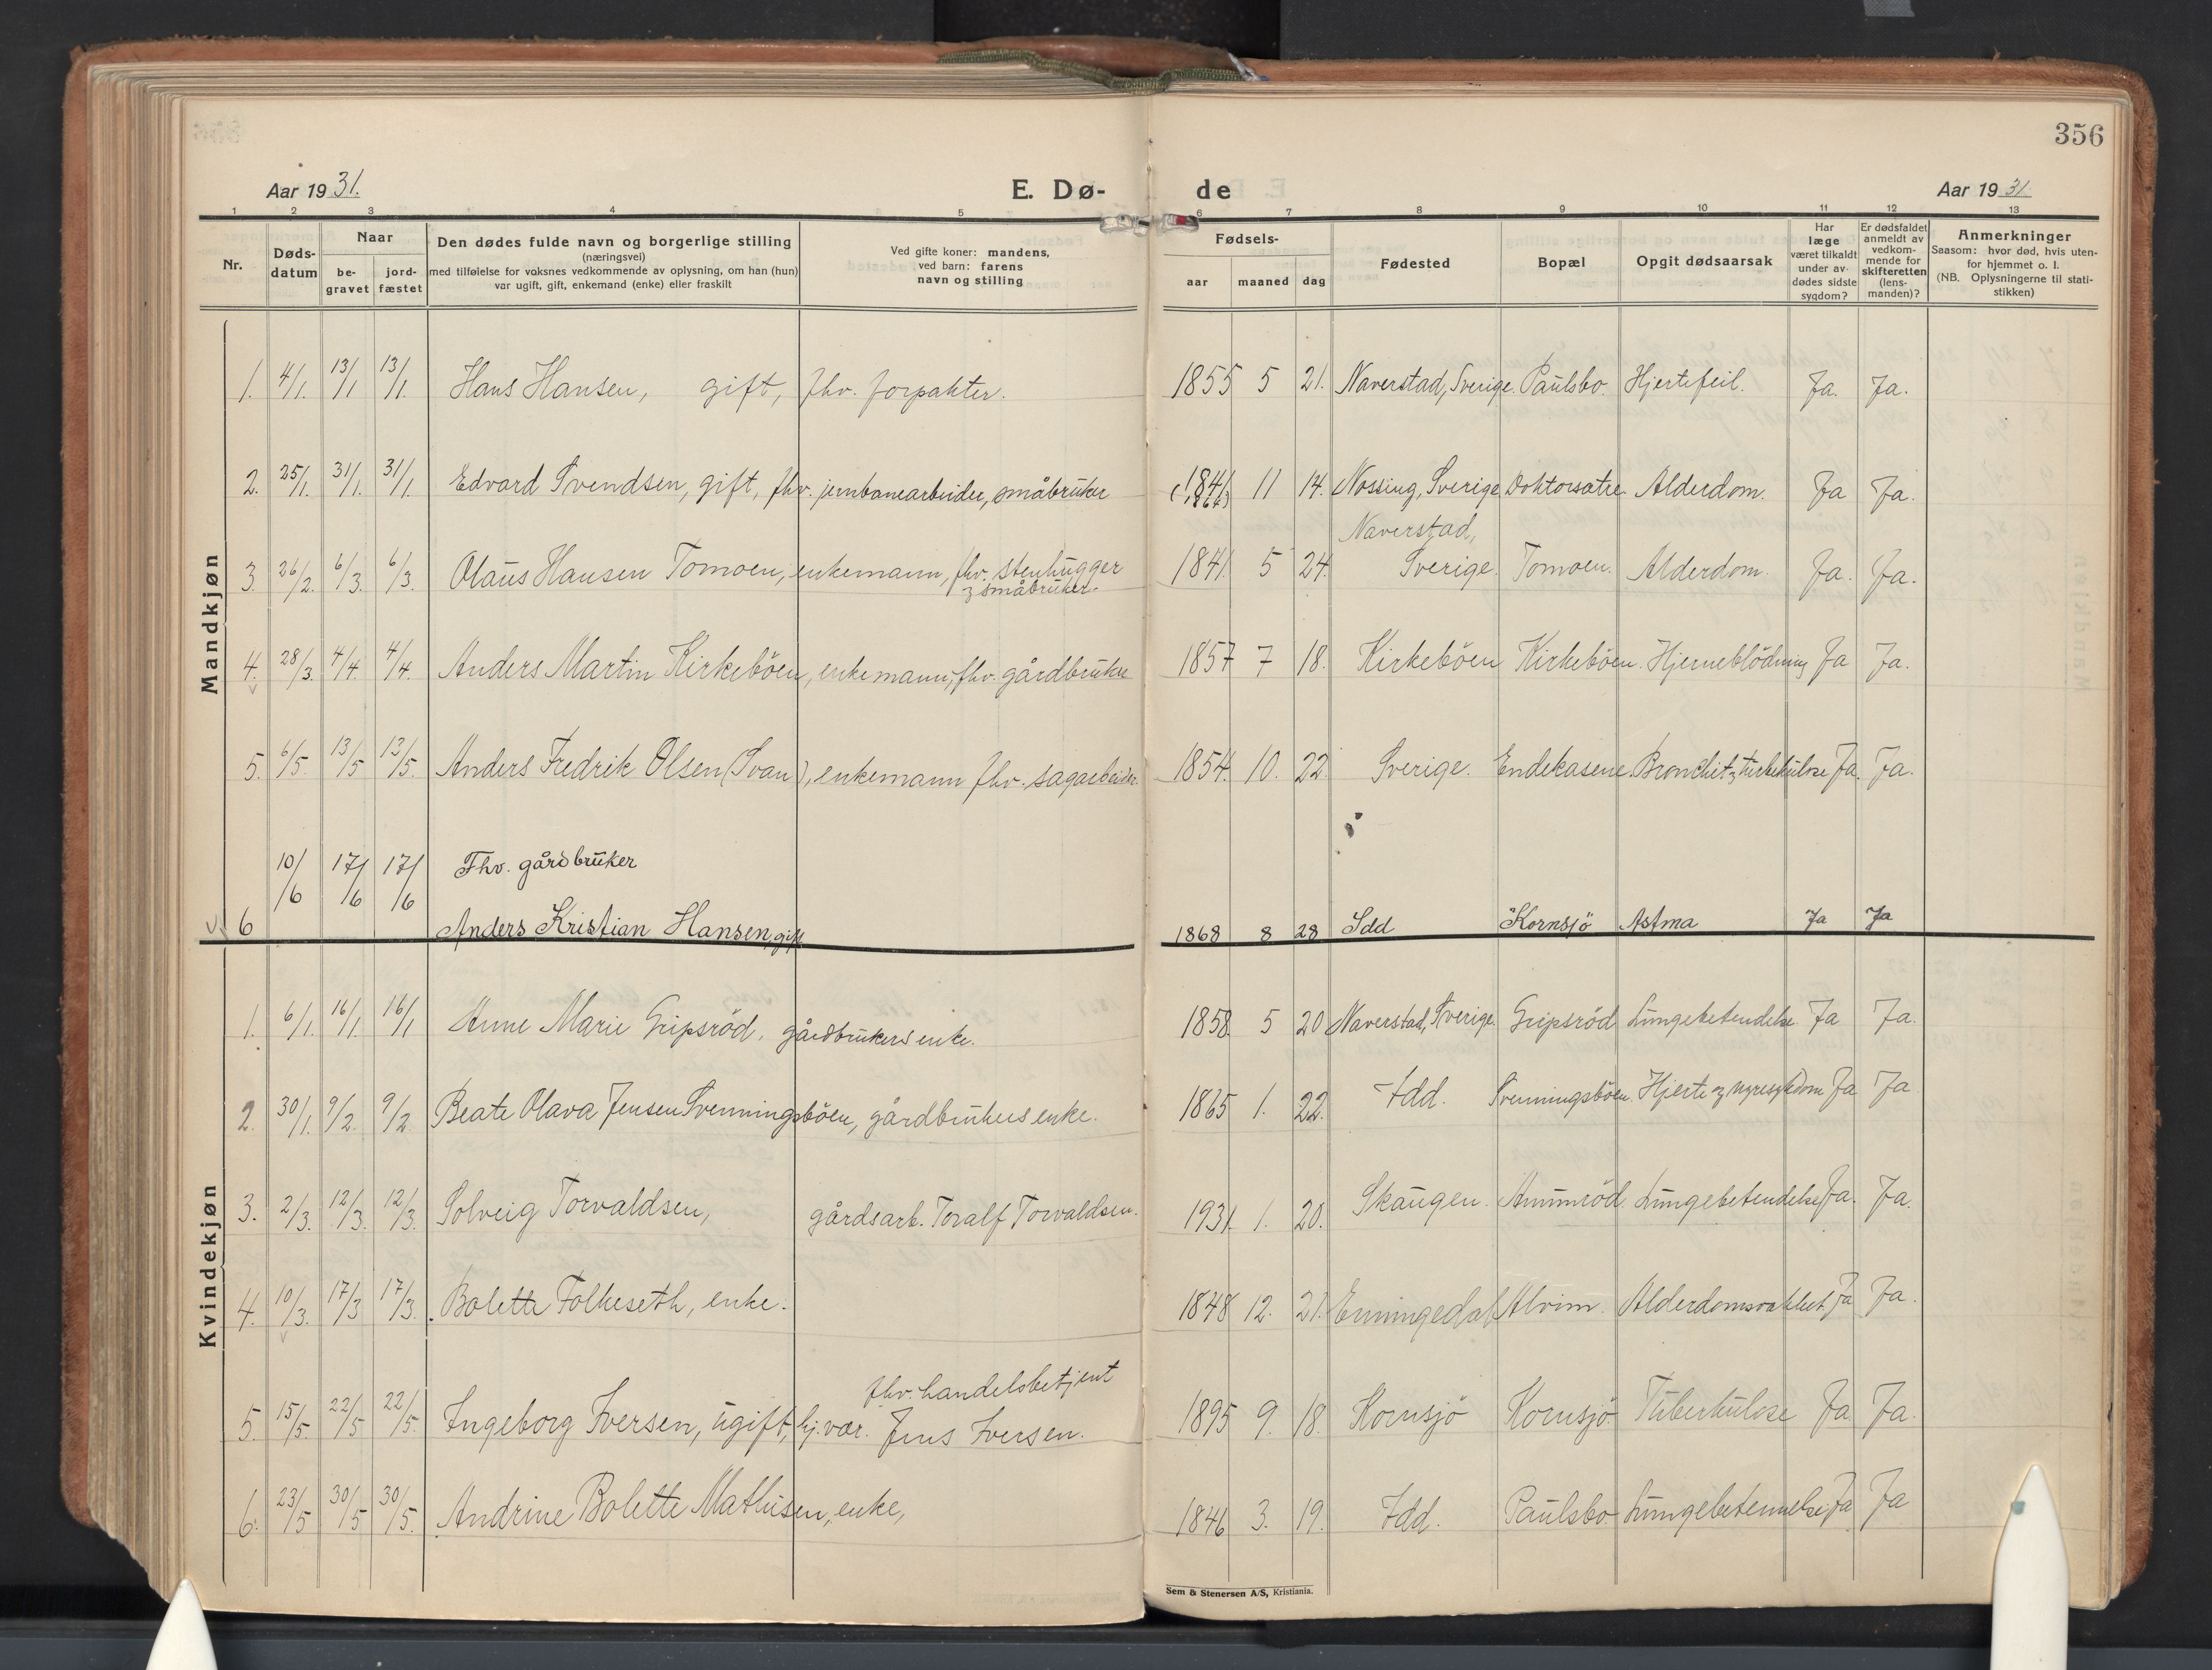 356
Aar 1931. E. Dø- de Aar 1931.
1 2 3 4 5 6 7 8 9 10 11 12 13
Nr. Døds-datum Naar be-gravet jord-fæstet Den dødes fulde navn og borgerlige stilling (næringsvei) med tilføielse for voksnes vedkommende av oplysning, om han (hun) var ugift, gift, enkemand (enke) eller fraskilt Ved gifte koner: mandens, ved barn: farens navn og stilling Fødsels- aar maaned dag Fødested Bopæl Opgit dødsaarsak Har læge været tilkaldt under av-dødes sidste sygdom? Er dødsfaldet anmeldt av vedkom-mende for skifteretten (lens-manden)? Anmerkninger Saasom: hvor død, hvis uten-for hjemmet o. l. (NB. Oplysningerne til stati-stikken)
Mandkjøn
1. 4/1. 13/1 13/1. Hans Hansen, gift, fhv. forpakter. 1855 5 21. Naverstad, Sverige. Paulsbo. Hjertefeil. Ja. Ja.
2. 25/1. 31/1. 31/1. Edvard Svendsen, gift, fhv. jernbanearbeider, småbruker 1841 11 14. Sverige Alderdom. Ja Ja.
3. 26/2. 6/3. 6/3. Olaus Hansen Tomoen, enkemann, fhv. stenhugger
& småbruker. 1841. 5 24. Naverstad,
Sverige. Tomoen. Alderdom. Ja. Ja.
4. 28/3. 4/4. 4/4. Anders Martin Kirkeböen, enkemann, fhv. gårdbruker 1857 7 18. Kirkeböen Kirkeböen. Hjerneblödning Ja Ja.
5. 6/5. 13/5 13/5. Anders Fredrik Olsen (Svan), enkemann fhv. sagarbeider. 1854. 10. 22. Sverige. Endekasene. Bronchit & tuberkulose Ja. Ja.
10/6 17/6 17/6 Fhv. gårdbruker
6 Anders Kristian Hansen, gift 1868 8 28 Idd Kornsjö Astma Ja Ja
Kvindekjøn
1. 6/1. 16/1. 16/1 Anne Marie Gripsröd, gårdbrukers enke. 1858. 5 20 Naverstad, Sverige. Gripsröd Lungebetendelse. Ja Ja.
2. 30/1. 9/2. 9/2. Beate Olava Jensen Svenningsböen, gårdbrukers enke. 1865 1. 22. Idd. Svenningsböen. Hjerte og nyresykdom Ja Ja
3. 2/3. 12/3. 12/3. Solveig Torvaldsen, gårdsarb. Toralf Torvaldsen. 1931. 1. 20. Skaugen. Amunröd. Lungebetendelse Ja. Ja.
4. 10/3. 17/3 17/3. Bolette Folkeseth, enke. 1848 12. 21. Enningedal Alvim. Alderdomssvakhet Ja Ja.
5. 15/5. 22/5 22/5. Ingeborg Iversen, ugift, hj.vær. fhv. handelsbetjent
Jens Iversen. 1895 9. 18. Kornsjö Kornsjö Tuberkulose Ja Ja.
6. 23/5 30/5 30/5. Andrine Bolette Mathisen, enke, 1846 3. 19. Idd. Paulsbo Lungebetennelse Ja Ja
Sem & Stenersen A/S, Kristiania.